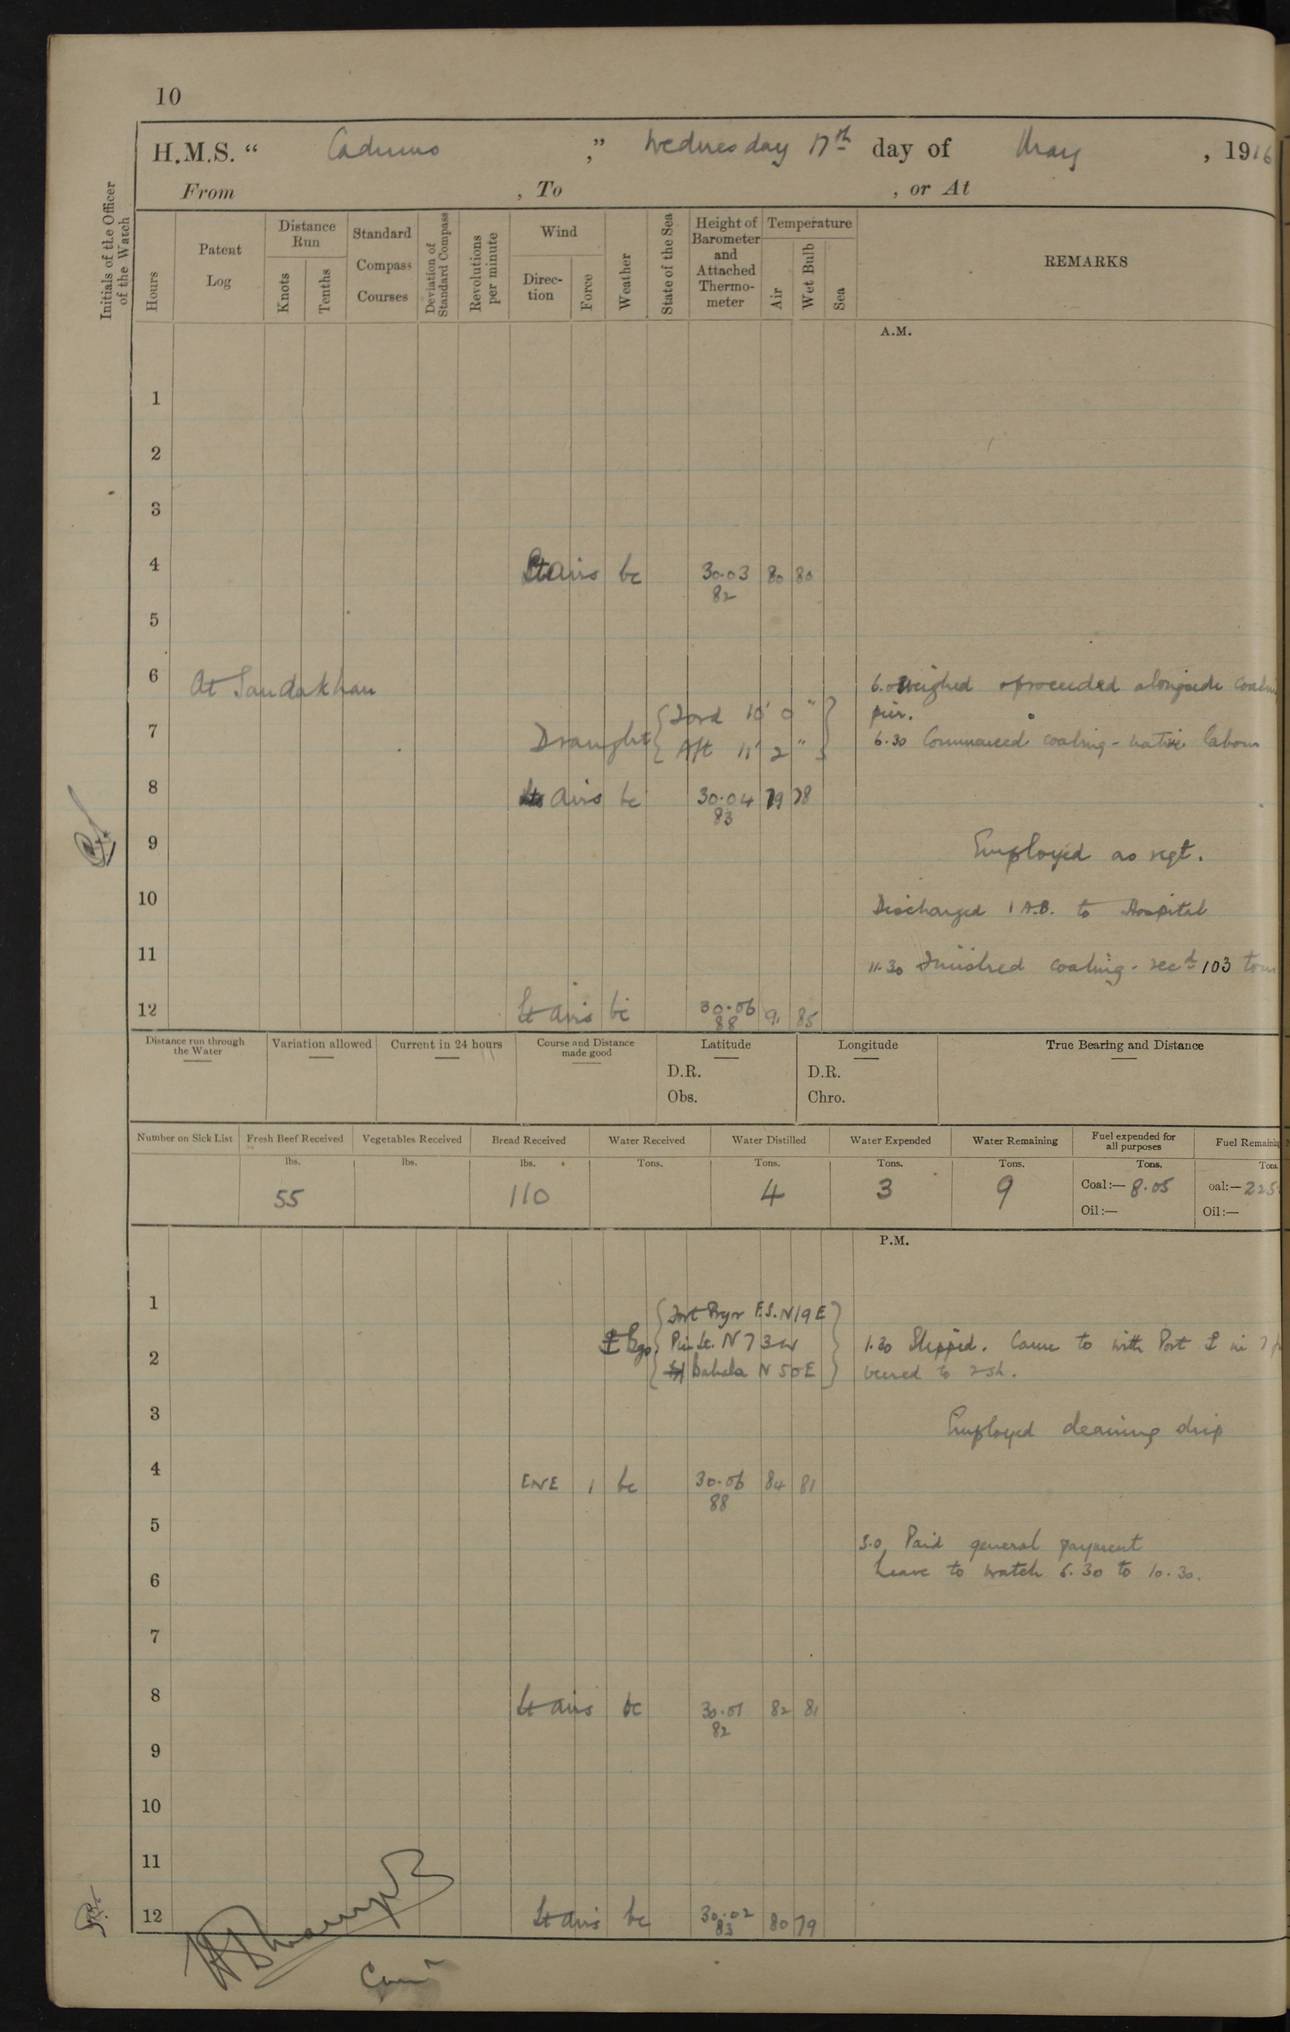 10
H.M.S. " Cadmus ," Wednesday 17th day of May , 1916
From , To , or At
Initials of the Officer of the Watch
Hours
Patent Log
Distance Run
Knots
Tenths
Standard Compass Courses
Deviation of Standard Compass
Revolutions per minute
Wind
Direction
Force
Weather
State of the Sea
Height of Barometer and Attached Thermometer
Temperature
Air
Wet Bulb
Sea
REMARKS
A.M.
1
2
3
4 Lt airs bc 30.03 80 80
82
5
6 At Sandakhan 6.0 weighed & proceeded alongside
pier.
7 Draught { Ford 10' 0" Aft 11' 2" }
6.30 Commenced coaling - native labour
8 Lt airs bc 30.04 79 78
83
9 Employed as reqt.
10 Discharged 1 A.B. to Hospital
11 11.30 Finished coaling - recd 103 tons
12 Lt airs bc 30.06 91 85
88
Distance run through the Water
Variation allowed
Current in 24 hours
Course and Distance made good
Latitude
D.R.
Obs.
Longitude
D.R.
Chro.
True Bearing and Distance
Number on Sick List
Fresh Beef Received lbs. 55
Vegetables Received lbs.
Bread Received lbs. 110
Water Received Tons.
Water Distilled Tons. 4
Water Expended Tons. 3
Water Remaining Tons. 9
Fuel expended for all purposes Tons.
Coal:— 8.05
Oil:—
Fuel Remaining Tons.
oal:— 225
Oil:—
P.M.
1 Fort Pryer F.S. N19E
2 Bgs Pier Lt. N73W 1.30 Slipped. Came to with Port in 7
Bahala N50E veered to 2 sh.
3 Employed cleaning ship
4 ENE 1 bc 30.06 84 81
88
5 5.0 Paid general payment
6 Leave to watch 6.30 to 10.30.
7
8 Lt airs bc 30.01 82 81
82
9
10
11
12 Lt airs bc 30.02 80 79
83